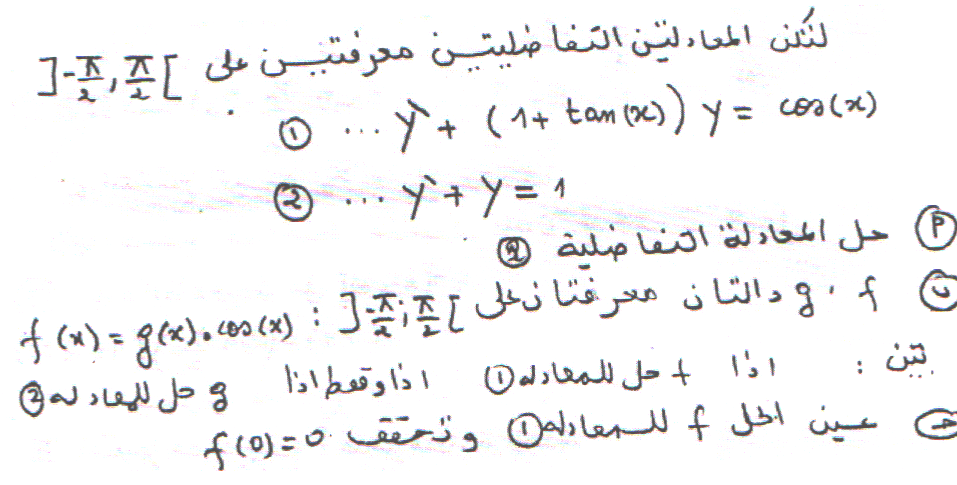 لتكن المعادلتين التفاضليتين معرفتين على ]-π/2, π/2[
① ... y` + (1+ tan(x)) y = cos(x)
② ... y` + y = 1
أ حل المعادلة التفاضلية ②
ب f ، g دالتان معرفتان على ]-π/2; π/2[ : f(x) = g(x).cos(x)
بين : اذا f حل للمعادلة ① اذا وفقط اذا g حل للمعادلة ②
ج عين الحل f للمعادلة ① و تحقق f(0)=0